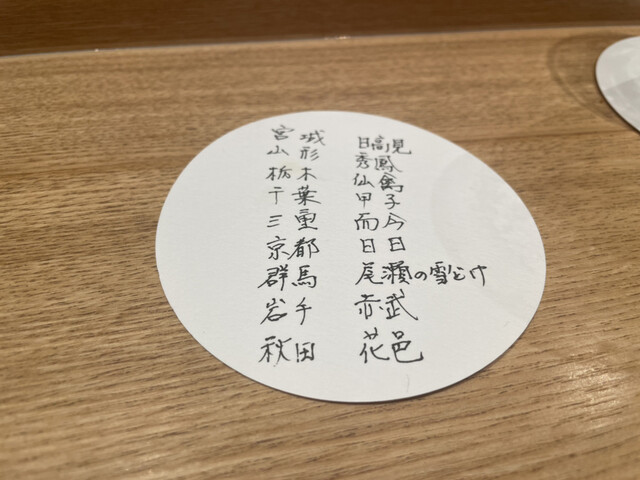 宮城 日高見
山形 秀鳳
栃木 仙禽
千葉 甲子
三重 而今
京都 日日
群馬 尾瀬の雪どけ
岩手 赤武
秋田 花邑